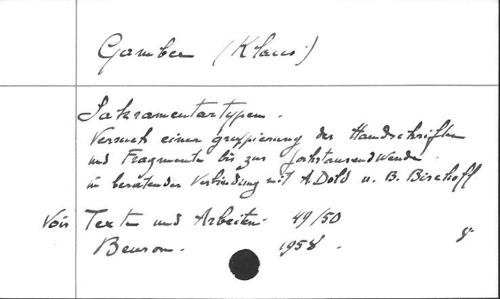 Gamber (Klaus)
Sakramentartypen.
Versuch einer gruppierung der Handschriften
und Fragmente bis zur Jahrtausendwende.
in beratender Verbindung mit A. Dold u. B. Bischoff
Voir Texte und Arbeiten. 49/50
Beuron. 1958.